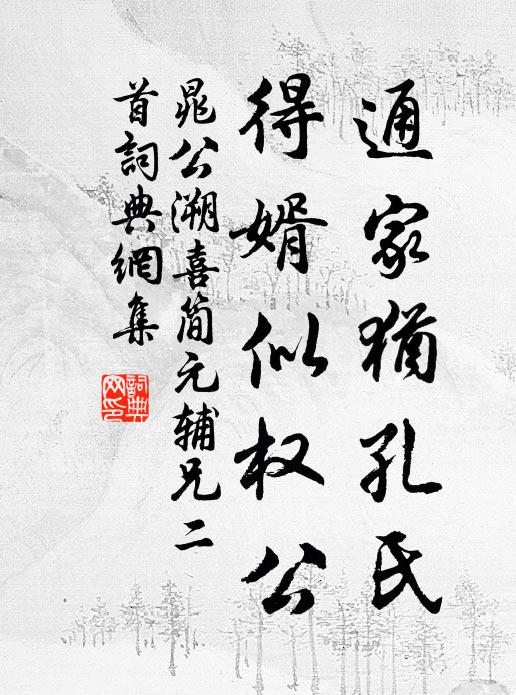 通家猶孔氏
得婿似权公
晁公溯喜简元辅兄二
首詞典網集
詞典
网印